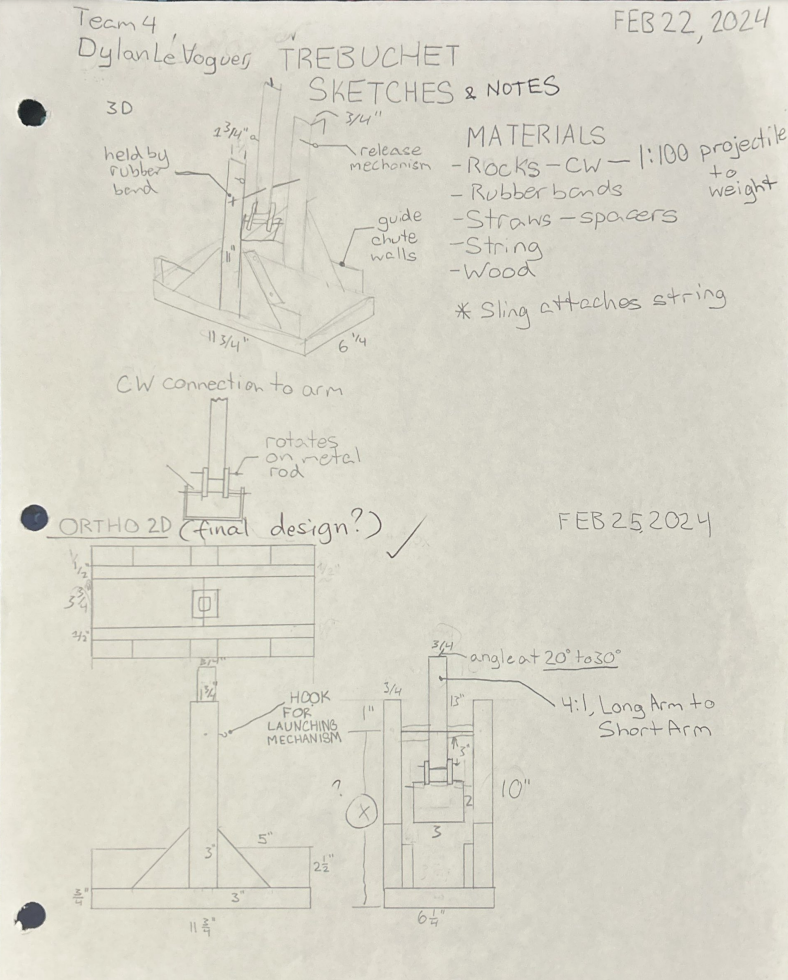 Team 4
FEB 22, 2024
Dylan LéVogues
TREBUCHET
SKETCHES & NOTES
3D
3/4"
1 3/4"
held by
rubber
band
release
mechanism
11"
guide
chute
walls
11 3/4"
6 1/4
MATERIALS
-Rocks-CW-1:100 projectile
to
weight
-Rubber bands
-Straws-spacers
-String
-Wood
* Sling attaches string
CW connection to arm
rotates
on metal
rod
ORTHO 2D (final design?) ✓
FEB 25, 2024
1/2"
3 3/4"
1/2"
3/4"
1 3/4"
HOOK
FOR
LAUNCHING
MECHANISM
3"
5"
2 1/2"
3/4"
3"
11 3/4"
3/4
angle at 20° to 30°
3/4
13"
4:1, Long Arm to
Short Arm
1"
3"
?
X
2
10"
3
6 1/4"